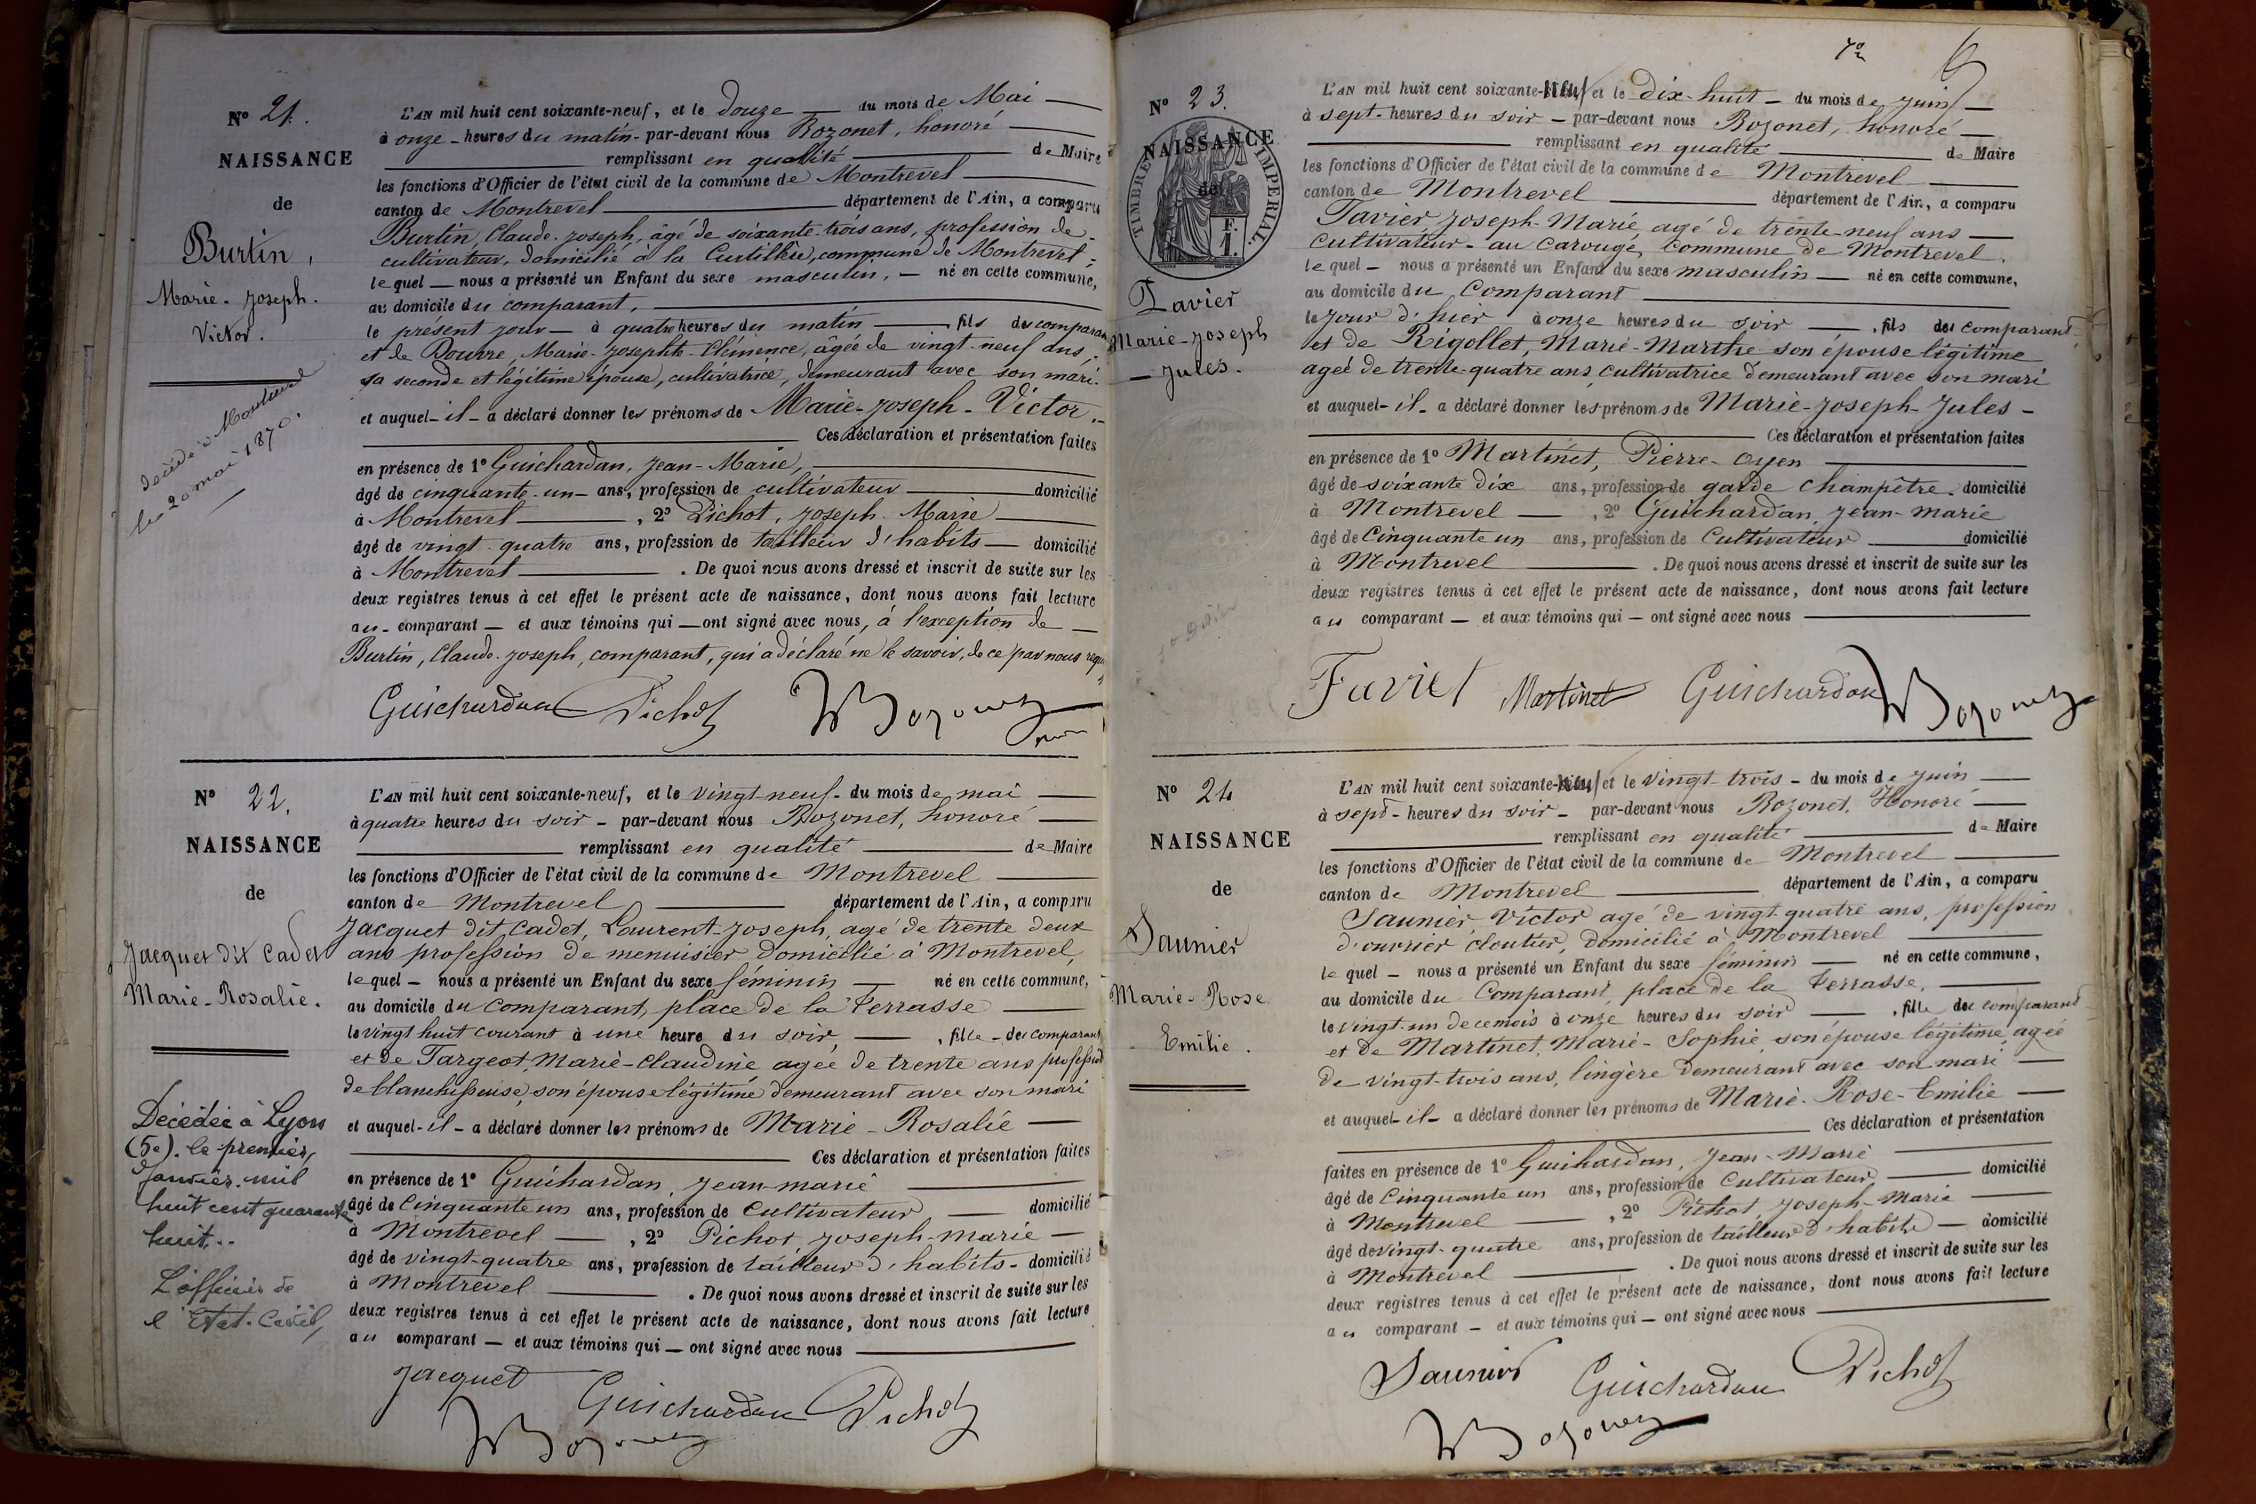 N° 21.
NAISSANCE
de
Burtin,
Marie-Joseph-
Victor.
décédé à Montrevel
le 20 mai 1870.
L'AN mil huit cent soixante-neuf, et le douze du mois de Mai
à onze heures du matin par-devant nous Bozonet, honoré
remplissant en qualité de Maire
les fonctions d'Officier de l'état civil de la commune de Montrevel
canton de Montrevel département de l'Ain, a comparu
Burtin, Claude-Joseph, âgé de soixante-trois ans, profession de
cultivateur, domicilié à la Curtillière, commune de Montrevel
lequel nous a présenté un Enfant du sexe masculin, né en cette commune,
au domicile du comparant,
le présent jour à quatre heures du matin fils du comparant
et de Bouvre, Marie-Josephte-Clémence, âgée de vingt-neuf ans,
sa seconde et légitime épouse, cultivatrice, demeurant avec son mari.
et auquel il a déclaré donner les prénoms de Marie-Joseph-Victor.
Ces déclaration et présentation faites
en présence de 1° Guichardan, Jean-Marie,
âgé de cinquante-un ans, profession de cultivateur domicilié
à Montrevel , 2° Pichot, Joseph-Marie
âgé de vingt-quatre ans, profession de tailleur d'habits domicilié
à Montrevel . De quoi nous avons dressé et inscrit de suite sur les
deux registres tenus à cet effet le présent acte de naissance, dont nous avons fait lecture
au comparant et aux témoins qui ont signé avec nous, à l'exception de
Burtin, Claude-Joseph, comparant, qui a déclaré ne le savoir, de ce par nous requis
Guichardan Pichot Bozonet
N° 22.
NAISSANCE
de
Jacquet dit Cadet
Marie-Rosalie.
Décédée à Lyon
(5e). le premier
Janvier mil
huit cent quarante
huit..
L'officier de
l'Etat-Civil,
L'AN mil huit cent soixante-neuf, et le vingt-neuf du mois de mai
à quatre heures du soir par-devant nous Bozonet, honoré
remplissant en qualité de Maire
les fonctions d'Officier de l'état civil de la commune de Montrevel
canton de Montrevel département de l'Ain, a comparu
Jacquet dit Cadet, Laurent-Joseph, agé de trente deux
ans profession de menuisier domicilié à Montrevel,
lequel nous a présenté un Enfant du sexe féminin né en cette commune,
au domicile du comparant, place de la Terrasse
le vingt huit courant à une heure du soir , fille du comparant
et de Targeot, Marie-Claudine agée de trente ans profession
de blanchisseuse, son épouse légitime demeurant avec son mari
et auquel il a déclaré donner les prénoms de Marie-Rosalie
Ces déclaration et présentation faites
en présence de 1° Guichardan, Jean-marie
âgé de Cinquante un ans, profession de Cultivateur domicilié
à Montrevel , 2° Pichot, Joseph-marie
âgé de vingt-quatre ans, profession de tailleur d'habits domicilié
à Montrevel . De quoi nous avons dressé et inscrit de suite sur les
deux registres tenus à cet effet le présent acte de naissance, dont nous avons fait lecture
au comparant et aux témoins qui ont signé avec nous
Jacquet
Guichardan Pichot
Bozonet
N° 23.
NAISSANCE
de
TIMBRE IMPERIAL
F.
1.
Favier
Marie-Joseph
Jules.
L'AN mil huit cent soixante-neuf et le dix-huit du mois de juin
à sept heures du soir par-devant nous Bozonet, honoré
remplissant en qualité de Maire
les fonctions d'Officier de l'état civil de la commune de Montrevel
canton de Montrevel département de l'Ain, a comparu
Favier Joseph-Marie, agé de trente-neuf ans
Cultivateur au Carouge, Commune de Montrevel,
lequel nous a présenté un Enfant du sexe masculin né en cette commune,
au domicile du Comparant
le Jour d'hier à onze heures du soir , fils du comparant,
et de Rigollet, Marie-Marthe son épouse légitime
agée de trente-quatre ans, cultivatrice demeurant avec son mari
et auquel il a déclaré donner les prénoms de Marie-Joseph-Jules
Ces déclaration et présentation faites
en présence de 1° Martinet, Pierre-Oyen
âgé de soixante dix ans, profession de garde champêtre domicilié
à Montrevel , 2° Guichardan, Jean-marie
âgé de Cinquante un ans, profession de Cultivateur domicilié
à Montrevel . De quoi nous avons dressé et inscrit de suite sur les
deux registres tenus à cet effet le présent acte de naissance, dont nous avons fait lecture
au comparant et aux témoins qui ont signé avec nous
Favier Martinet Guichardan Bozonet
N° 24
NAISSANCE
de
Saunier
Marie-Rose
Emilie.
L'AN mil huit cent soixante-neuf et le vingt-trois du mois de juin
à sept heures du soir par-devant nous Bozonet, Honoré
remplissant en qualité de Maire
les fonctions d'Officier de l'état civil de la commune de Montrevel
canton de Montrevel département de l'Ain, a comparu
Saunier, Victor agé de vingt quatre ans, profession
d'ouvrier cloutier, domicilié à Montrevel
lequel nous a présenté un Enfant du sexe féminin né en cette commune,
au domicile du Comparant, place de la Terrasse,
le vingt-un de ce mois à onze heures du soir , fille du comparant
et de Martinet, Marie-Sophie, son épouse légitime, agée
de vingt-trois ans, lingère demeurant avec son mari
et auquel il a déclaré donner les prénoms de Marie-Rose-Emilie
Ces déclaration et présentation
faites en présence de 1° Guichardan, Jean-Marie
âgé de Cinquante un ans, profession de Cultivateur domicilié
à Montrevel , 2° Pichot, Joseph-Marie
âgé de vingt-quatre ans, profession de tailleur d'habits domicilié
à Montrevel . De quoi nous avons dressé et inscrit de suite sur les
deux registres tenus à cet effet le présent acte de naissance, dont nous avons fait lecture
au comparant et aux témoins qui ont signé avec nous
Saunier Guichardan Pichot
Bozonet